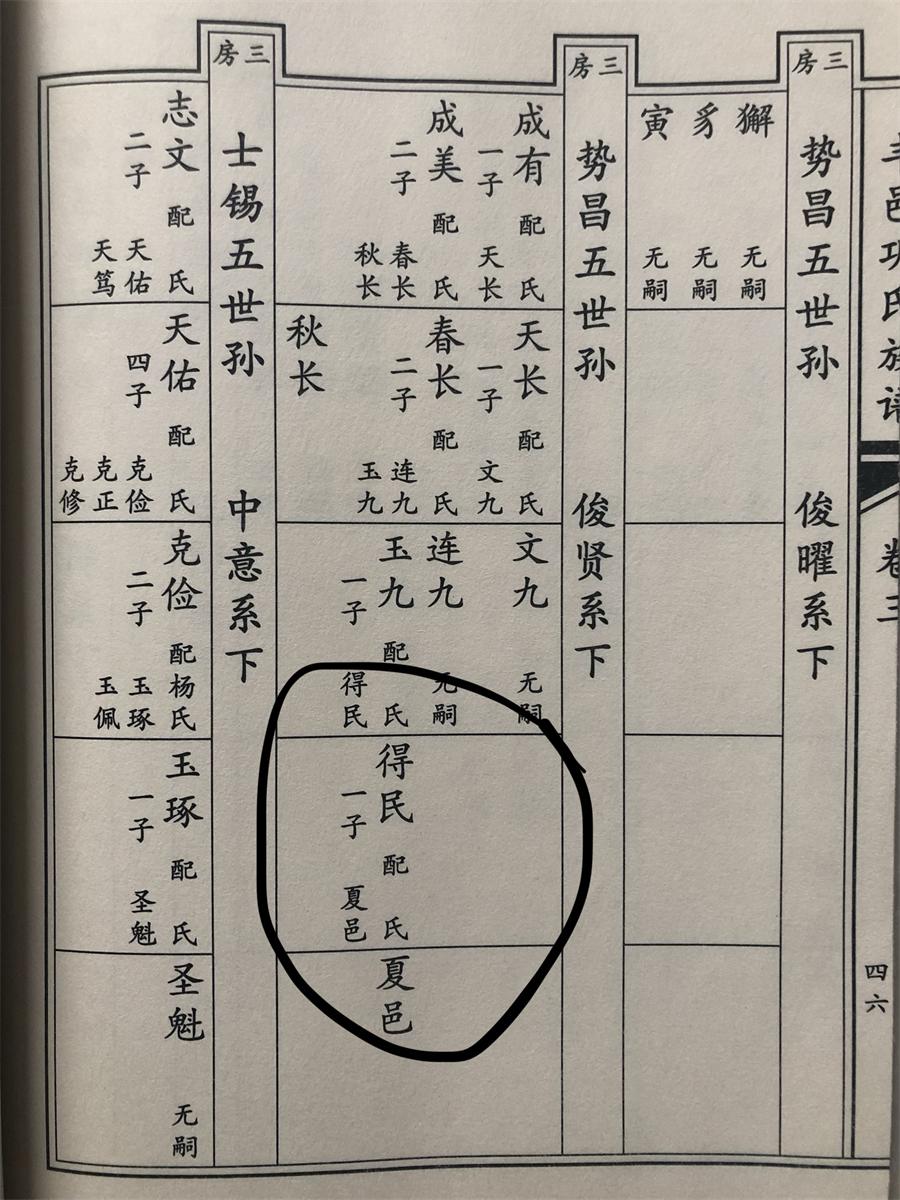 丰邑 氏族谱
卷三
四六
三房
势昌五世孙 俊曜系下
獬 无嗣
豸 无嗣
寅 无嗣
三房
势昌五世孙 俊贤系下
成有 配 氏
一子 天长
成美 配 氏
二子 春长
秋长
天长 配 氏
一子 文九
春长 配 氏
二子 连九
玉九
秋长
文九 无嗣
连九 无嗣
玉九 配 氏
一子 得民
得民 配 氏
一子 夏邑
夏邑
三房
士锡五世孙 中意系下
志文 配 氏
二子 天佑
天笃
天佑 配 氏
四子 克俭
克正
克修
克俭 配杨氏
二子 玉琢
玉佩
玉琢 配 氏
一子 圣魁
圣魁 无嗣